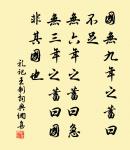 國無九年之蓄曰
不足
無六年之蓄曰急
無三年之蓄曰國
非其國也
禮記王制句典網集